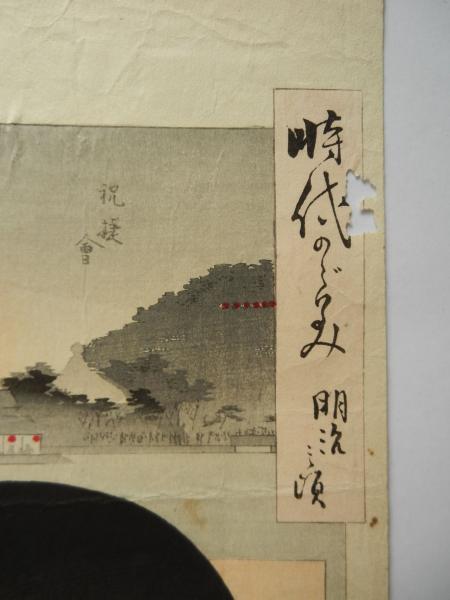 時代かゞみ
明治之頃
祝捷會